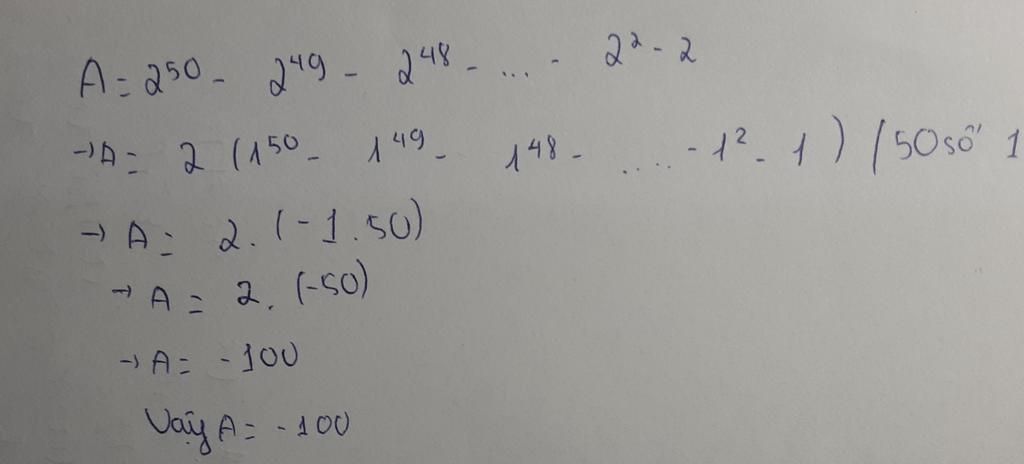 A = 2⁵⁰ - 2⁴⁹ - 2⁴⁸ - ... - 2² - 2
→ A = 2 (1⁵⁰ - 1⁴⁹ - 1⁴⁸ - .... - 1² - 1) (50 số 1
→ A = 2. (-1.50)
→ A = 2. (-50)
→ A = -100
Vậy A = -100